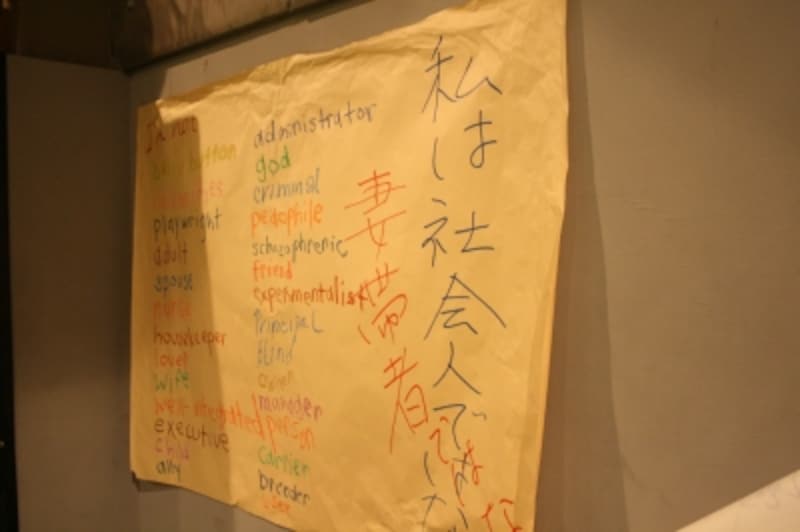 I'm not
belly button
playwright
adult
spouse
nurse
housekeeper
lover
wife
well-integrated person
executive
child
ally
administrator
god
criminal
pedophile
schizophrenic
friend
experimentalist
principal
blind
owner
manager
carrier
breeder
妻帯者では
私は社会人で